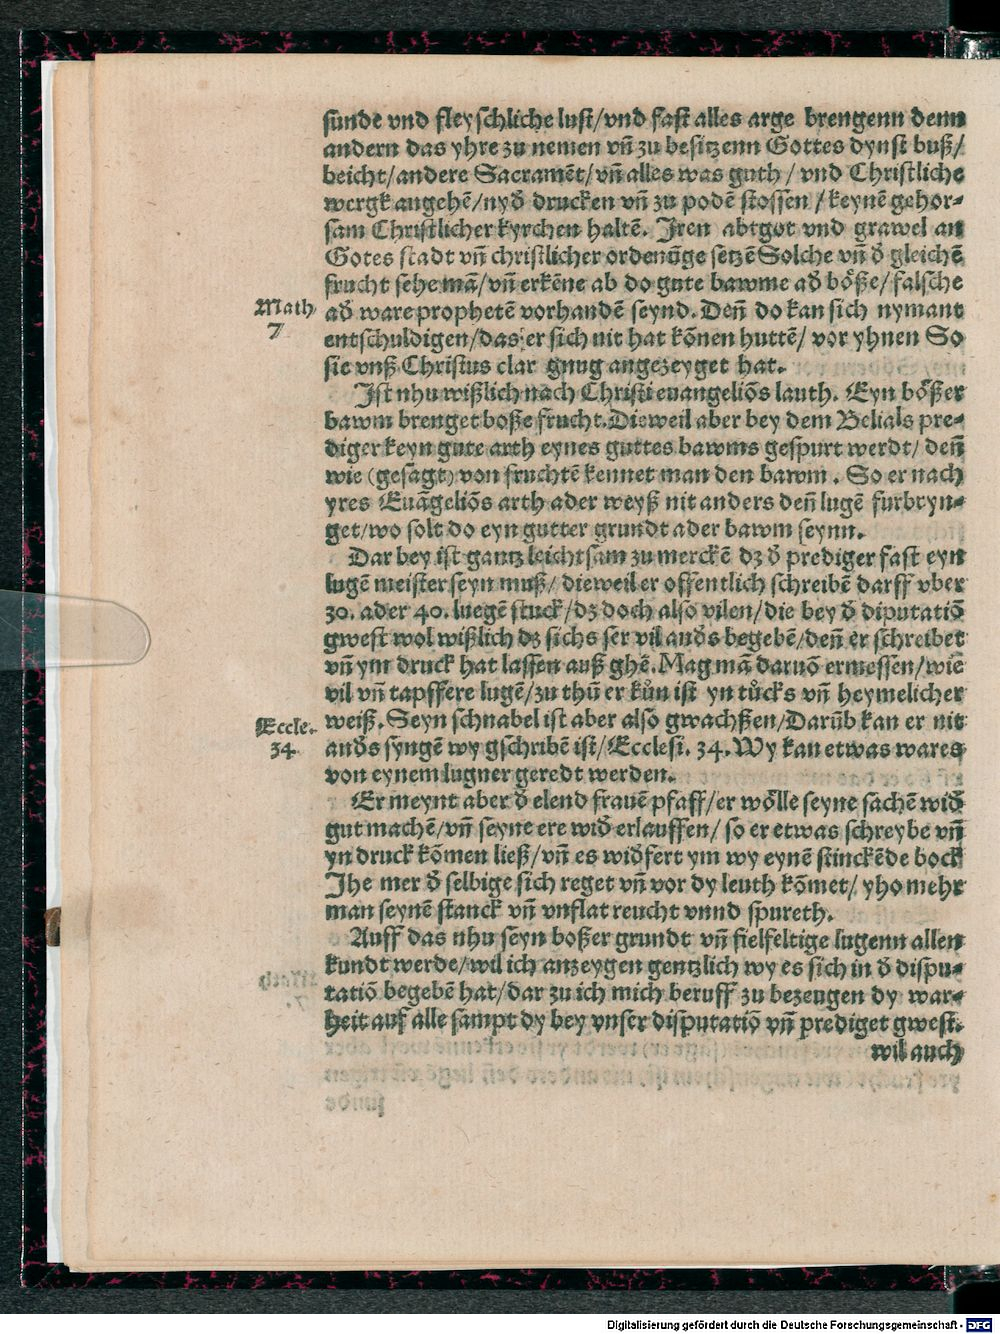 sunde vnd fleyschliche lust/vnd fast alles arge brengenn denn
andern das yhre zu nemen vn̄ zu besitzenn Gottes dynst buß/
beicht/andere Sacramēt/vn̄ alles was guth/ vnd Christliche
wergk angehē/nyd̄ drucken vn̄ zu podē stossen/keynē gehor⸗
sam Christlicher kyrchen haltē. Iren abtgot vnd grawel an
Gotes stadt vn̄ christlicher ordenūge setzē Solche vn̄ d̄ gleichē
frucht sehe mā/vn̄ erkēne ab do gute bawme ad̄ böße/falsche
Math
7
ad̄ ware prophetē vorhandē seynd. Den̄ do kan sich nymant
entschuldigen/das er sich nit hat kōnen huttē/ vor yhnen So
sie vnß Christus clar gnug angezeyget hat.
Ist nhu wißlich nach Christi euangeliōs lauth. Eyn bößer
bawm brenget boße frucht. Dieweil aber bey dem Belials pre⸗
diger keyn gute arth eynes guttes bawms gespurt werdt/ den̄
wie (gesagt) von fruchtē kennet man den bawm. So er nach
yres Euāgeliōs arth ader weyß nit anders den̄ lugē furbryn⸗
get/wo solt do eyn gutter grundt ader bawm seynn.
Dar bey ist gantz leichtsam zu merckē dz d̄ prediger fast eyn
lugē meister seyn muß/ dieweil er offentlich schreibē darff vber
30. ader 40. luegē stuck/dz doch also vilen/die bey d̄ diputatiō
gwest wol wißlich dz sichs ser vil and̄s begebē/den̄ er schreibet
vn̄ ym druck hat lassen auß ghē. Mag mā daruō ermessen/wie
vil vn̄ tapffere lugē/zu thu̅ er kůn ist yn tůcks vn̄ heymelicher
Eccle.
34.
weiß. Seyn schnabel ist aber also gwachßen/Darūb kan er nit
and̄s syngē wy gschribē ist/Ecclesi. 34. Wy kan etwas wares
von eynem lugner geredt werden.
Er meynt aber d̄ elend frauē pfaff/er wölle seyne sachē wid̄
gut machē/vn̄ seyne ere wid̄ erlauffen/ so er etwas schreybe vn̄
yn druck kōmen ließ/vn̄ es wid̄fert ym wy eynē stinckēde bock
Ihe mer d̄ selbige sich reget vn̄ vor dy leuth kōmet/ yho mehr
man seynē stanck vn̄ vnflat reucht vnnd spureth.
Auff das nhu seyn boßer grundt vn̄ fielfeltige lugenn allen
kundt werde/wil ich anzeygen gentzlich wy es sich in d̄ dispu⸗
tatiō begebē hat/dar zu ich mich beruff zu bezeugen dy war⸗
heit auf alle sampt dy bey vnser disputatiō vn̄ prediget gwest.
wil auch
Digitalisierung gefördert durch die Deutsche Forschungsgemeinschaft - DFG